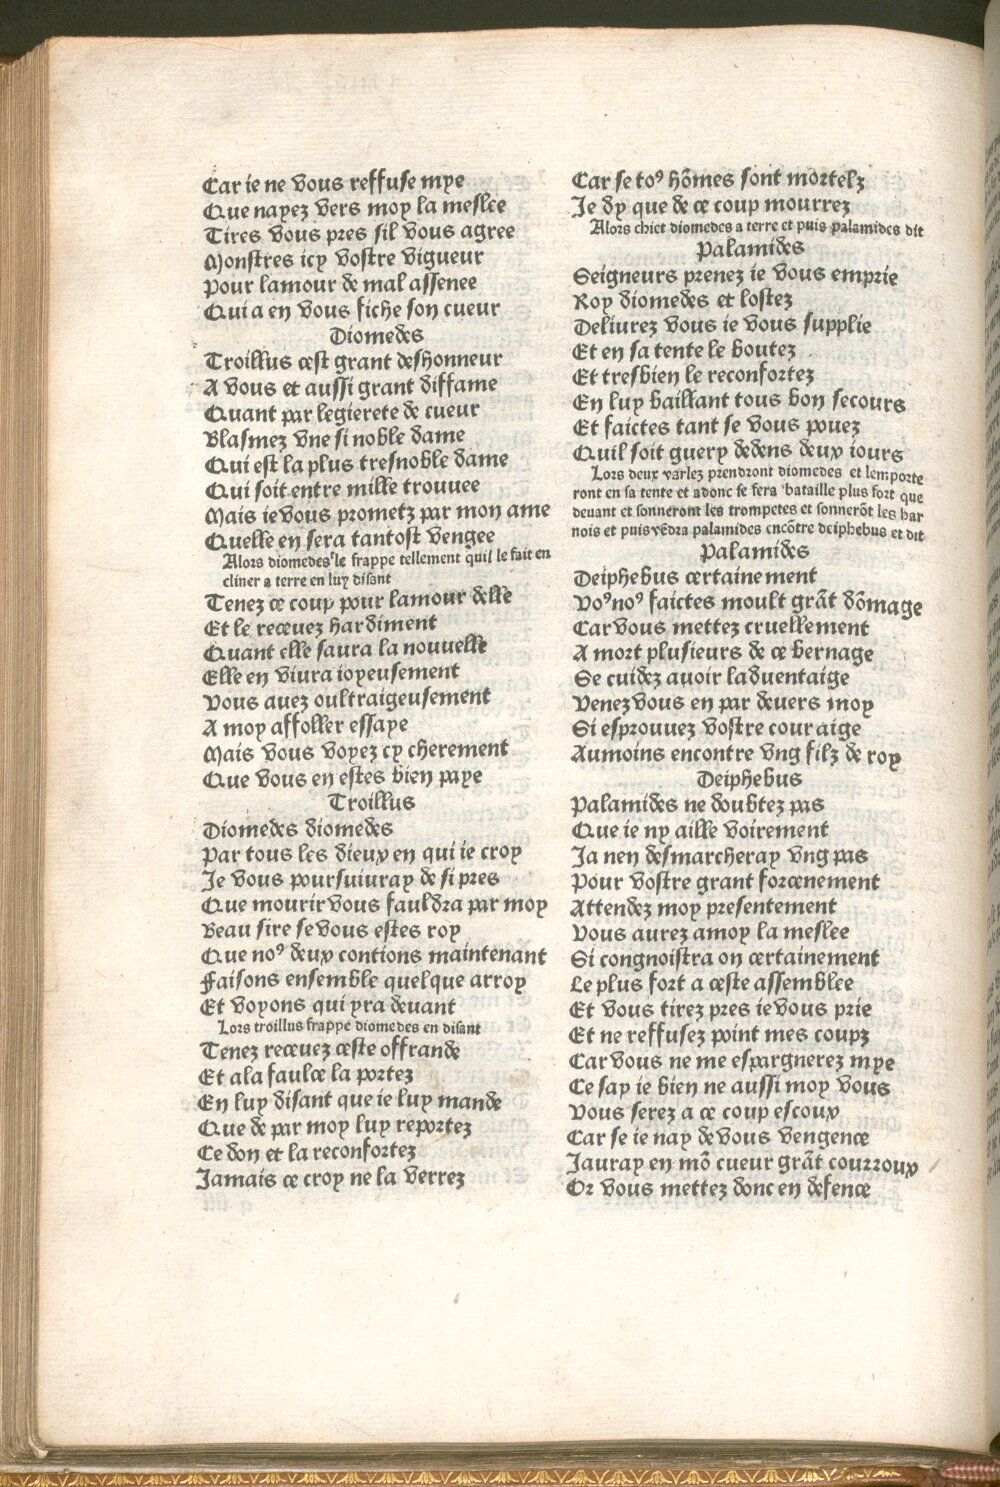 Car ie ne vous reffuse mye
Que nayez vers moy la meslee
Tires vous pres sil vous agree
Monstres icy vostre vigueur
Pour lamour de mal assenee
Qui a en vous fiche son cueur
Diomedes
Troillus cest grant deshonneur
A vous et aussi grant diffame
Quant par legierete de cueur
Blasmez vne si noble dame
Qui est la plus tresnoble dame
Qui soit entre mille trouuee
Mais ie vous prometz par mon ame
Quelle en sera tantost vengee
Alors diomedes le frappe tellement quil le fait en
cliner a terre en luy disant
Tenez ce coup pour lamour delle
Et le receuez hardiment
Quant elle saura la nouuelle
Elle en viura ioyeusement
Vous auez oultraigeusement
A moy affoller essaye
Mais vous voyez cy cherement
Que vous en estes bien paye
Troillus
Diomedes diomedes
Par tous les dieux en qui ie croy
Je vous poursuiuray de si pres
Que mourir vous fauldra par moy
Beau sire se vous estes roy
Que noꝰ deux contions maintenant
Faisons ensemble quelque arroy
Et voyons qui yra deuant
Lors troillus frappe diomedes en disant
Tenez receuez ceste offrande
Et ala faulce la portez
En luy disant que ie luy mande
Que de par moy luy reportez
Ce don et la reconfortez
Jamais ce croy ne la verrez
Car se toꝰ hõmes sont mortelz
Je dy que de ce coup mourrez
Alors chiet diomedes a terre et puis palamides dit
Palamides
Seigneurs prenez ie vous emprie
Roy diomedes et lostez
Deliurez vous ie vous supplie
Et en sa tente le boutez
Et tresbien le reconfortez
En luy baillant tous bon secours
Et faictes tant se vous pouez
Quil soit guery dedens deux iours
Lors deux varlez prendront diomedes et lemporte
ront en sa tente et adonc se fera bataille plus fort que
deuant et sonneront les trompetes et sonnerõt les har
nois et puis vẽdra palamides encõtre deiphebus et dit
Palamides
Deiphebus certainement
Voꝰ noꝰ faictes moult grãt dõmage
Car vous mettez cruellement
A mort plusieurs de ce bernage
Se cuidez auoir laduentaige
Venez vous en par deuers moy
Si esprouuez vostre couraige
Aumoins encontre vng filz de roy
Deiphebus
Palamides ne doubtez pas
Que ie ny aille voirement
Ja nen desmarcheray vng pas
Pour vostre grant forcenement
Attendez moy presentement
Vous aurez amoy la meslee
Si congnoistra on certainement
Le plus fort a ceste assemblee
Et vous tirez pres ie vous prie
Et ne reffusez point mes coupz
Car vous ne me espargnerez mye
Ce say ie bien ne aussi moy vous
Vous serez a ce coup escoux
Car se ie nay de vous vengence
Jauray en mõ cueur grãt courroux
Or vous mettez donc en defence